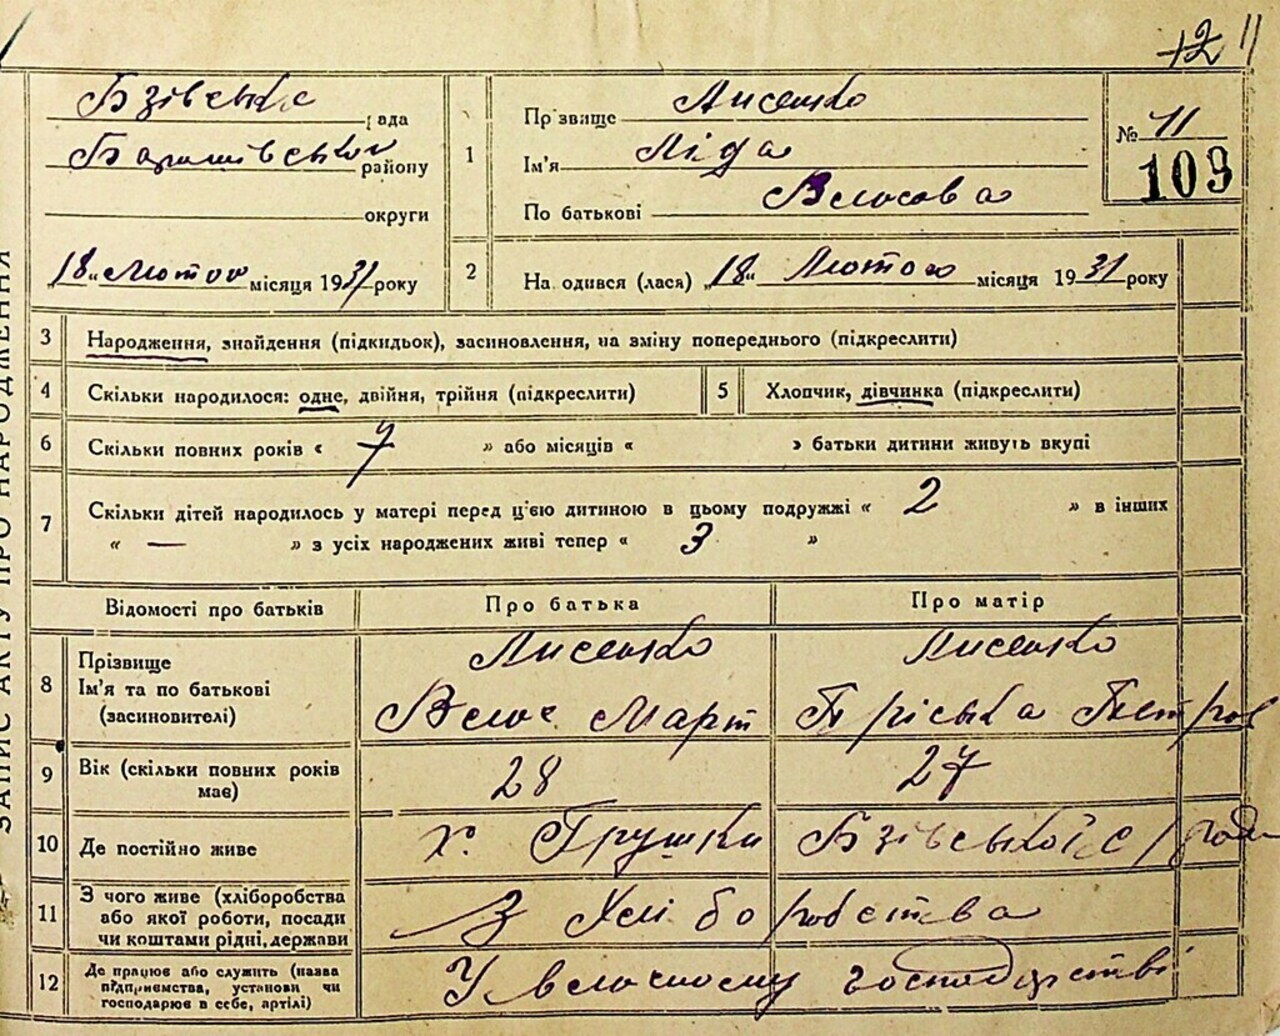 12 11
Бзівська рада
Баришівського району
округи
18 „ Лютого місяця 1931 року
1
Прізвище Лисенко
Ім'я Ліда
По батькові Власова
№ 11
109
2
На одився (лася) „18“ Лютого місяця 1931 року
ЗАПИС АКТУ ПРО НАРОДЖЕННЯ
3 Народження, знайдення (підкидьок), засиновлення, на зміну попереднього (підкреслити)
4 Скільки народилося: одне, двійня, трійня (підкреслити) 5 Хлопчик, дівчинка (підкреслити)
6 Скільки повних років « 7 » або місяців « » батьки дитини живуть вкупі
7 Скільки дітей народилось у матері перед ц'єю дитиною в цьому подружжі « 2 » в інших
« — » з усіх народжених живі тепер « 3 »
Відомості про батьків Про батька Про матір
8 Прізвище Лисенко Лисенко
Ім'я та по батькові Влас Март Пріська Петров
(засиновителі)
9 Вік (скільки повних років 28 27
має)
10 Де постійно живе х. Грушки Бзівської с/ради
11 З чого живе (хліборобства З Хліборобства
або якої роботи, посади
чи коштами рідні, держави
12 Де працює або служить (назва У власному господарстві
підприємства, установи чи
господарює в себе, артілі)